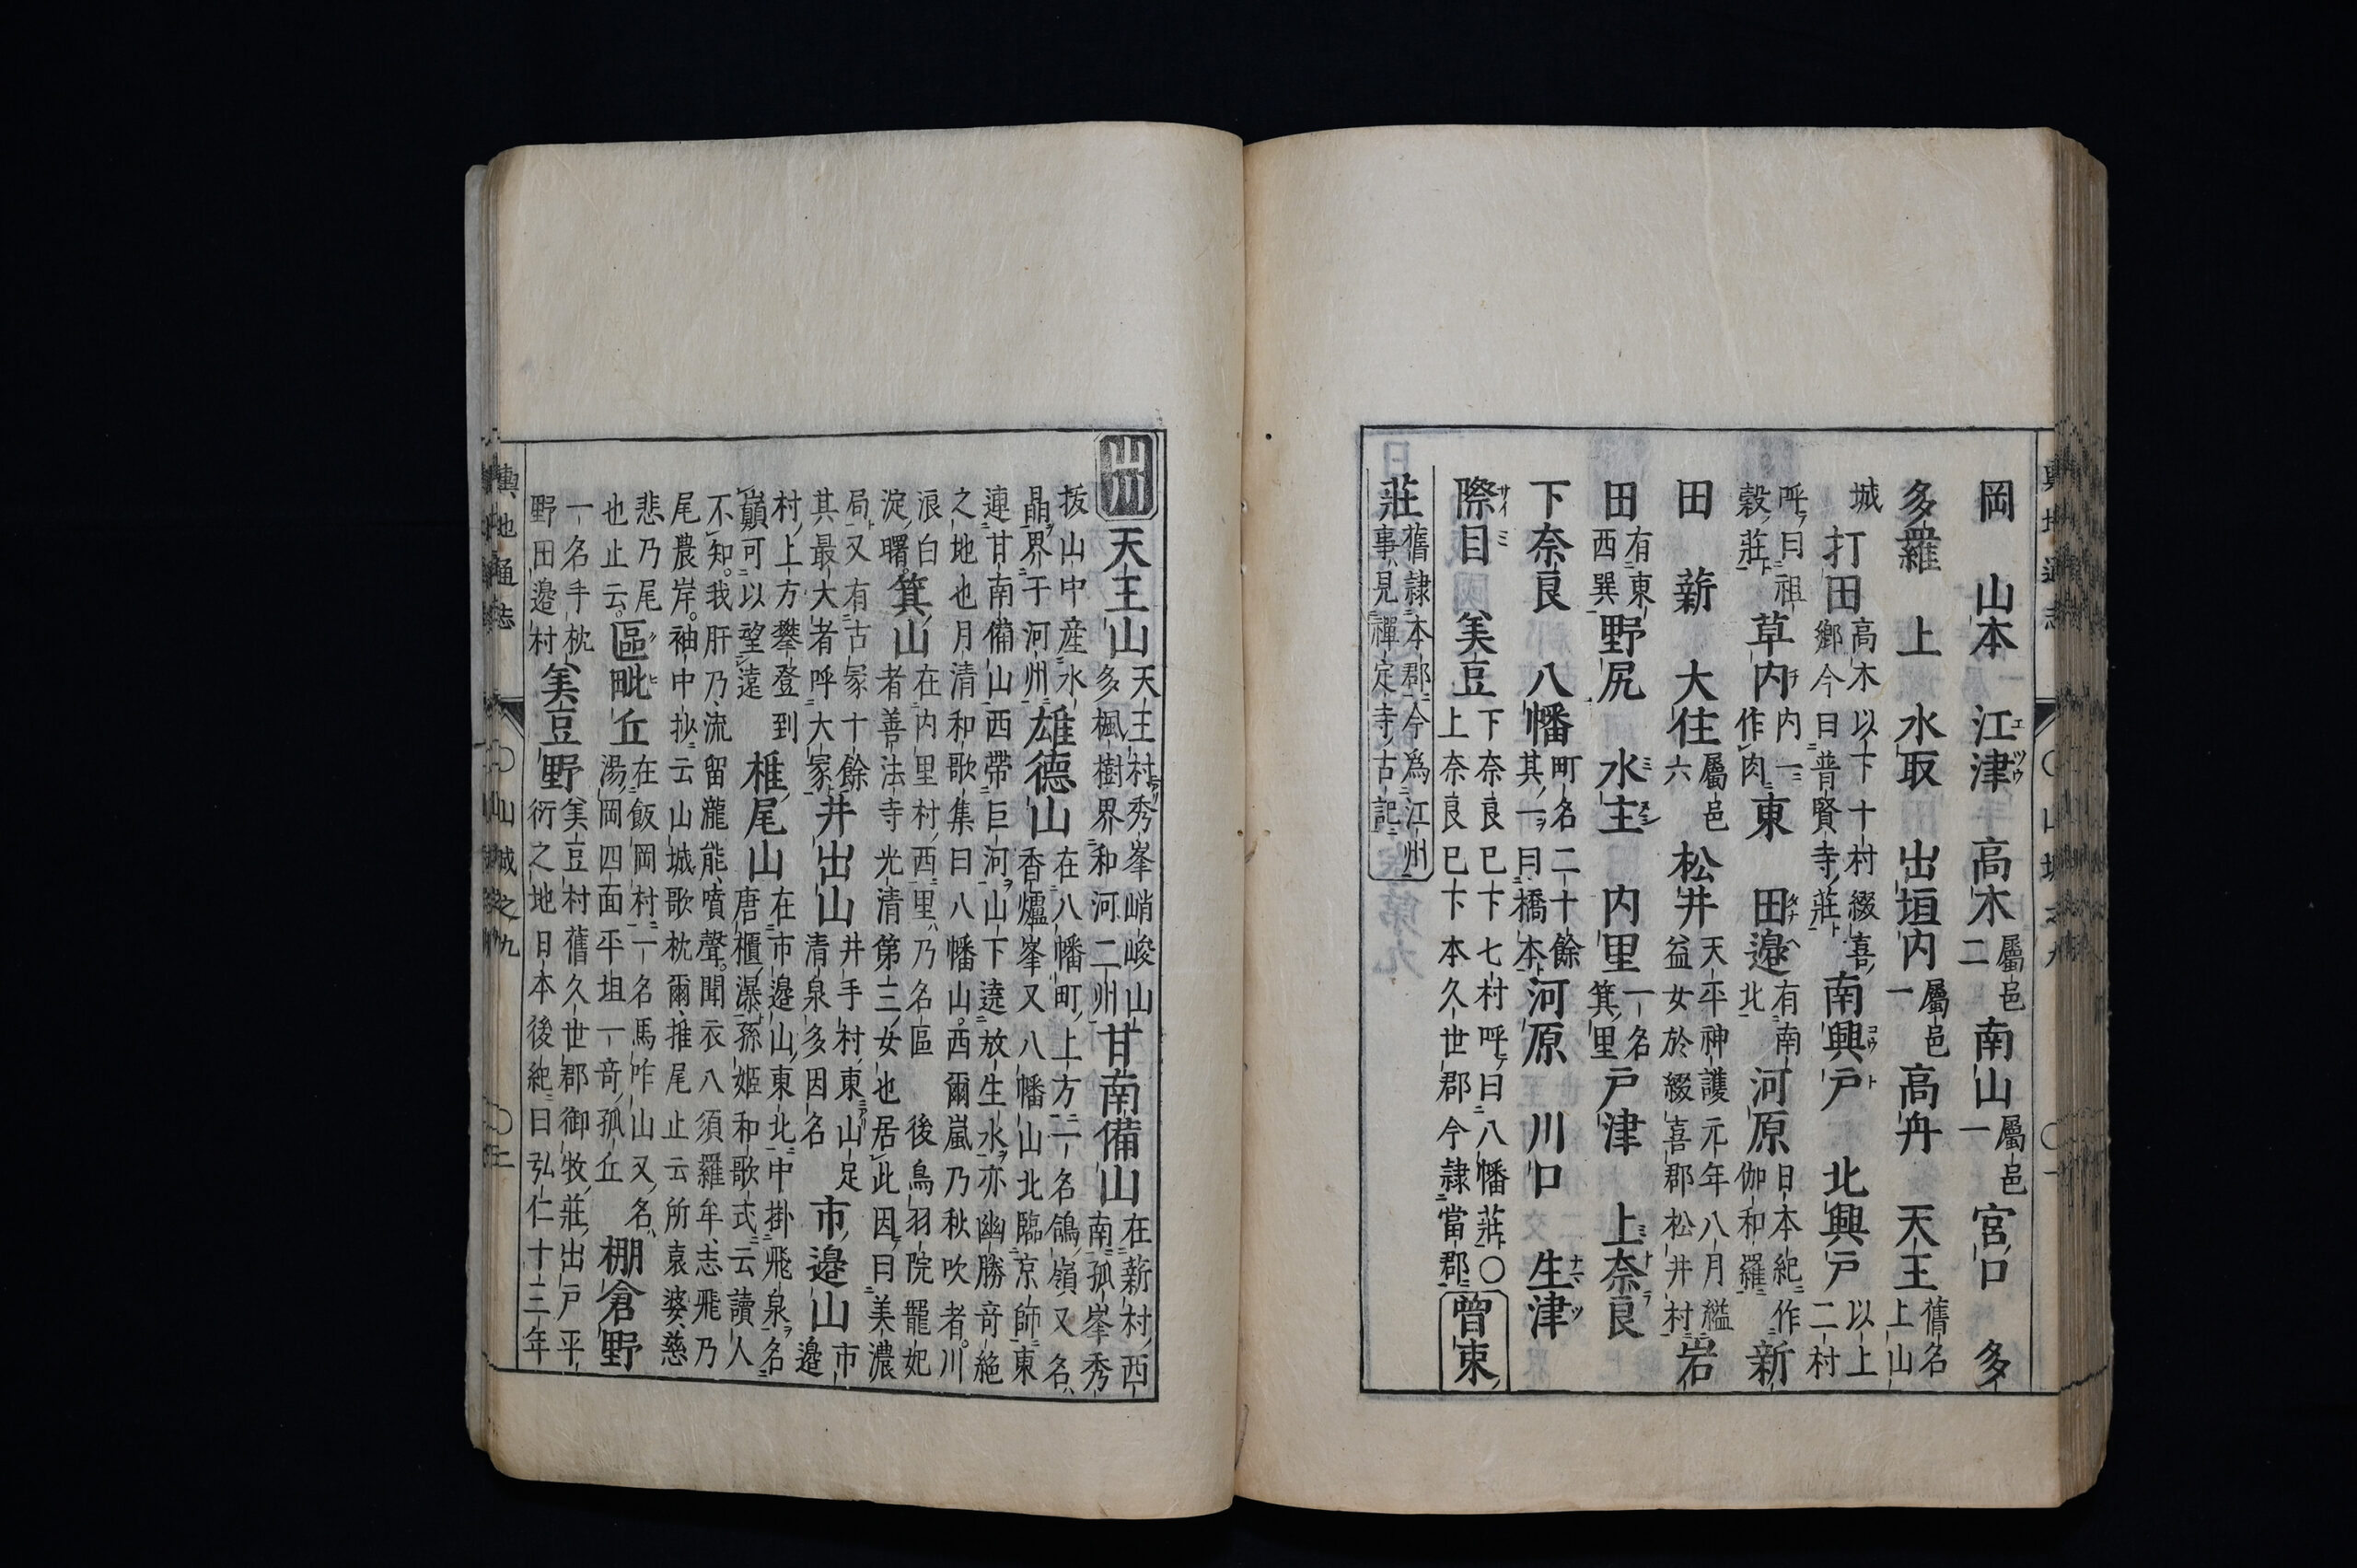 岡 山本 江津 高木 屬邑二 南山 屬邑一 宮口 多
多羅 上 水取 出垣内 屬邑一 高舟 天王 舊名上山
城 打田 高木以下十村綴喜郷今曰普賢寺莊 南興戸 北興戸 以上二村
呼曰祖穀莊 草内 内一作肉 東 田邉 有南北 河原 日本紀作伽和羅 新
田 薪 大住 屬邑六 松井 天平神護元年八月縊益女於綴喜郡松井村 岩
田 有東西巽 野尻 水主 内里 一名箕里 戸津 上奈良
下奈良 八幡 町名二十餘其一曰橋本 河原 川口 生津
際目 美豆 下奈良已下七村呼曰八幡莊○上奈良已下本久世郡今隷當郡 曽束
莊 舊隷本郡今爲江州事見禪定寺古記
山 天王山 天王村秀峯峭峻山多楓樹界和河二州 甘南備山 在薪村西南孤峯秀
拔山中産水晶界干河州 雄德山 在八幡町上方一名鴿嶺又名香爐峯又八幡山北臨京師東
連甘南備山西帶巨河山下遶放生水亦幽勝竒絶之地也月清和歌集曰八幡山西爾嵐乃秋吹者川
浪白淀曙 箕山 在内里村西里乃名區 後鳥羽院寵妃者善法寺光清第三女也居此因曰美濃
局又有古冢十餘其最大者呼大冢 井出山 井手村東山足清泉多因名 市邉山 市邉
村上方攀登到巓可以望遠 椎尾山 在市邉山東北中掛飛泉名唐櫃瀑孫姫和歌式云讀人
不知我肝乃流留瀧能噴聲聞衣八須羅牟志飛乃尾農岸袖中抄云山城歌枕爾推尾止云所袁婆慈
悲乃尾也止云 區毗丘 在飯岡村一名馬咋山又名湯岡四面平坦一竒孤丘 棚倉野
一名手枕野田邉村 美豆野 美豆村舊久世郡御牧莊出戸平衍之地日本後紀曰弘仁十三年
輿地通志 ○山城之九 ○二